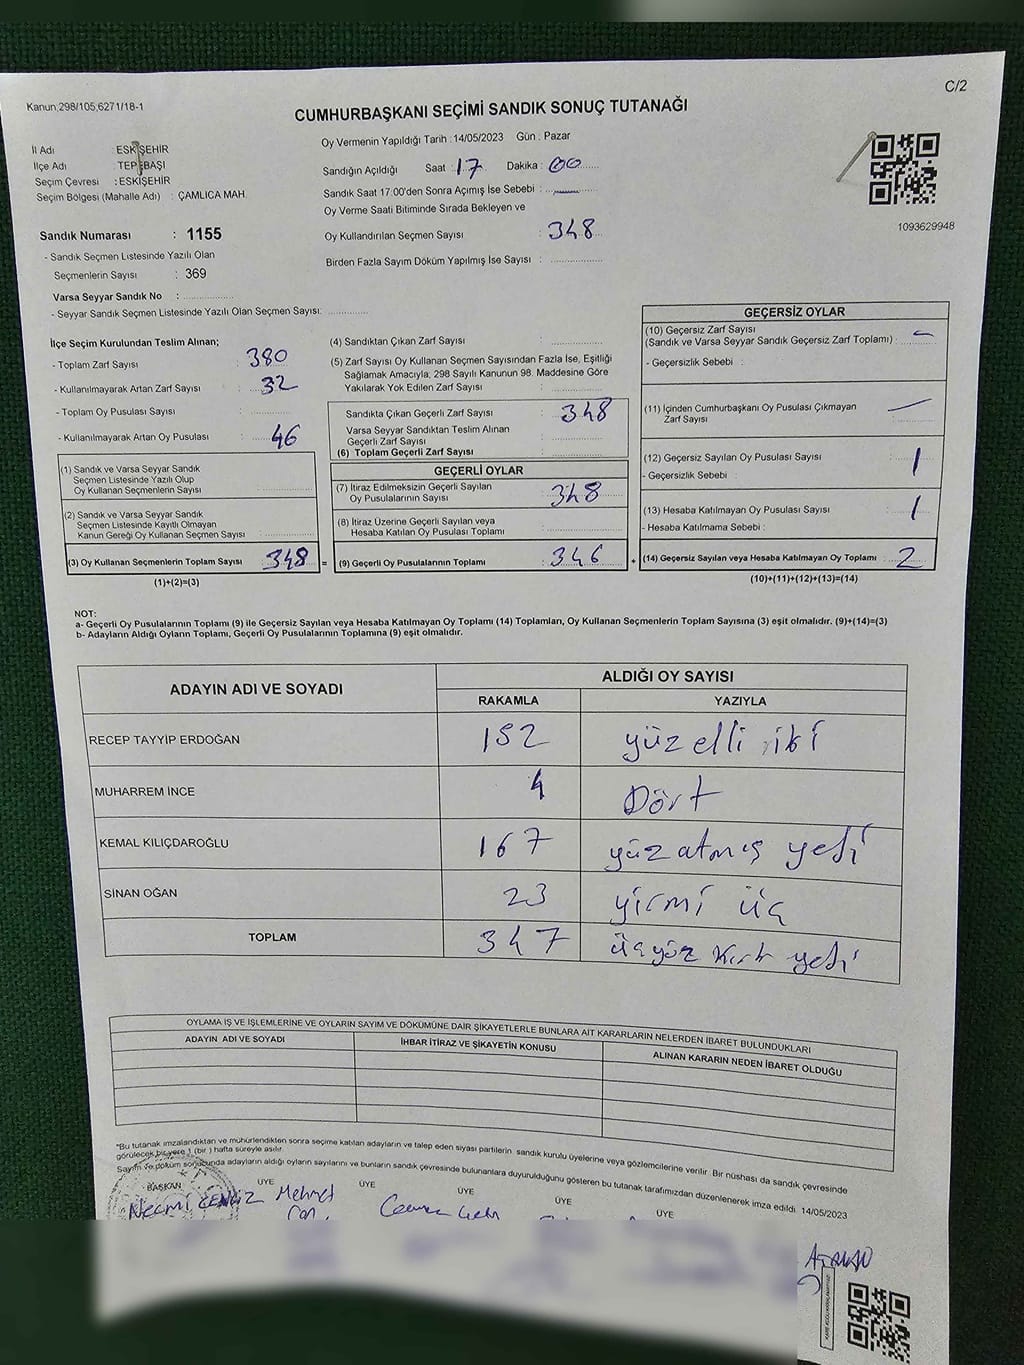 C/2
Kanun;298/105,6271/18-1
CUMHURBAŞKANI SEÇİMİ SANDIK SONUÇ TUTANAĞI
İl Adı : ESKİŞEHİR
İlçe Adı : TEPEBAŞI
Seçim Çevresi : ESKİŞEHİR
Seçim Bölgesi (Mahalle Adı) : ÇAMLICA MAH.
Oy Vermenin Yapıldığı Tarih : 14/05/2023 Gün : Pazar
Sandığın Açıldığı Saat : 17 Dakika : 00
Sandık Saat 17:00'den Sonra Açımış İse Sebebi :
Oy Verme Saati Bitiminde Sırada Bekleyen ve
Oy Kullandırılan Seçmen Sayısı : 348
Birden Fazla Sayım Döküm Yapılmış İse Sayısı :
1093629948
Sandık Numarası : 1155
- Sandık Seçmen Listesinde Yazılı Olan
Seçmenlerin Sayısı : 369
Varsa Seyyar Sandık No :
- Seyyar Sandık Seçmen Listesinde Yazılı Olan Seçmen Sayısı:
İlçe Seçim Kurulundan Teslim Alınan;
- Toplam Zarf Sayısı : 380
- Kullanılmayarak Artan Zarf Sayısı : 32
- Toplam Oy Pusulası Sayısı :
- Kullanılmayarak Artan Oy Pusulası : 46
(1) Sandık ve Varsa Seyyar Sandık
Seçmen Listesinde Yazılı Olup
Oy Kullanan Seçmenlerin Sayısı :
(2) Sandık ve Varsa Seyyar Sandık
Seçmen Listesinde Kayıtlı Olmayan
Kanun Gereği Oy Kullanan Seçmen Sayısı :
(3) Oy Kullanan Seçmenlerin Toplam Sayısı : 348 =
(1)+(2)=(3)
(4) Sandıktan Çıkan Zarf Sayısı :
(5) Zarf Sayısı Oy Kullanan Seçmen Sayısından Fazla İse, Eşitliği
Sağlamak Amacıyla; 298 Sayılı Kanunun 98. Maddesine Göre
Yakılarak Yok Edilen Zarf Sayısı :
Sandıkta Çıkan Geçerli Zarf Sayısı : 348
Varsa Seyyar Sandıktan Teslim Alınan
Geçerli Zarf Sayısı :
(6) Toplam Geçerli Zarf Sayısı :
GEÇERLİ OYLAR
(7) İtiraz Edilmeksizin Geçerli Sayılan
Oy Pusulalarının Sayısı : 348
(8) İtiraz Üzerine Geçerli Sayılan veya
Hesaba Katılan Oy Pusulası Toplamı :
(9) Geçerli Oy Pusulalarının Toplamı : 346 +
GEÇERSİZ OYLAR
(10) Geçersiz Zarf Sayısı
(Sandık ve Varsa Seyyar Sandık Geçersiz Zarf Toplamı) : -
- Geçersizlik Sebebi :
(11) İçinden Cumhurbaşkanı Oy Pusulası Çıkmayan
Zarf Sayısı —
(12) Geçersiz Sayılan Oy Pusulası Sayısı : 1
- Geçersizlik Sebebi :
(13) Hesaba Katılmayan Oy Pusulası Sayısı : 1
- Hesaba Katılmama Sebebi :
(14) Geçersiz Sayılan veya Hesaba Katılmayan Oy Toplamı : 2
(10)+(11)+(12)+(13)=(14)
NOT:
a- Geçerli Oy Pusulalarının Toplamı (9) ile Geçersiz Sayılan veya Hesaba Katılmayan Oy Toplamı (14) Toplamları, Oy Kullanan Seçmenlerin Toplam Sayısına (3) eşit olmalıdır. (9)+(14)=(3)
b- Adayların Aldığı Oyların Toplamı, Geçerli Oy Pusulalarının Toplamına (9) eşit olmalıdır.
ADAYIN ADI VE SOYADI ALDIĞI OY SAYISI
RAKAMLA YAZIYLA
RECEP TAYYİP ERDOĞAN 152 yüz elli iki
MUHARREM İNCE 4 Dört
KEMAL KILIÇDAROĞLU 167 yüz atmış yedi
SİNAN OĞAN 23 yirmi üç
TOPLAM 347 üçyüz kırk yedi
OYLAMA İŞ VE İŞLEMLERİNE VE OYLARIN SAYIM VE DÖKÜMÜNE DAİR ŞİKAYETLERLE BUNLARA AİT KARARLARIN NELERDEN İBARET BULUNDUKLARI
ADAYIN ADI VE SOYADI İHBAR İTİRAZ VE ŞİKAYETİN KONUSU ALINAN KARARIN NEDEN İBARET OLDUĞU
*Bu tutanak imzalandıktan ve mühürlendikten sonra seçime katılan adayların ve talep eden siyasi partilerin sandık kurulu üyelerine veya gözlemcilerine verilir. Bir nüshası da sandık çevresinde
görülecek bir yere 1 (bir ) hafta süreyle asılır.
Sayım ve döküm sonucunda adayların aldığı oyların sayılarını ve bunların sandık çevresinde bulunanlara duyurulduğunu gösteren bu tutanak tarafımızdan düzenlenerek imza edildi. 14/05/2023
BAŞKAN ÜYE ÜYE ÜYE ÜYE ÜYE
Necmi CENGİZ Mehmet
Can